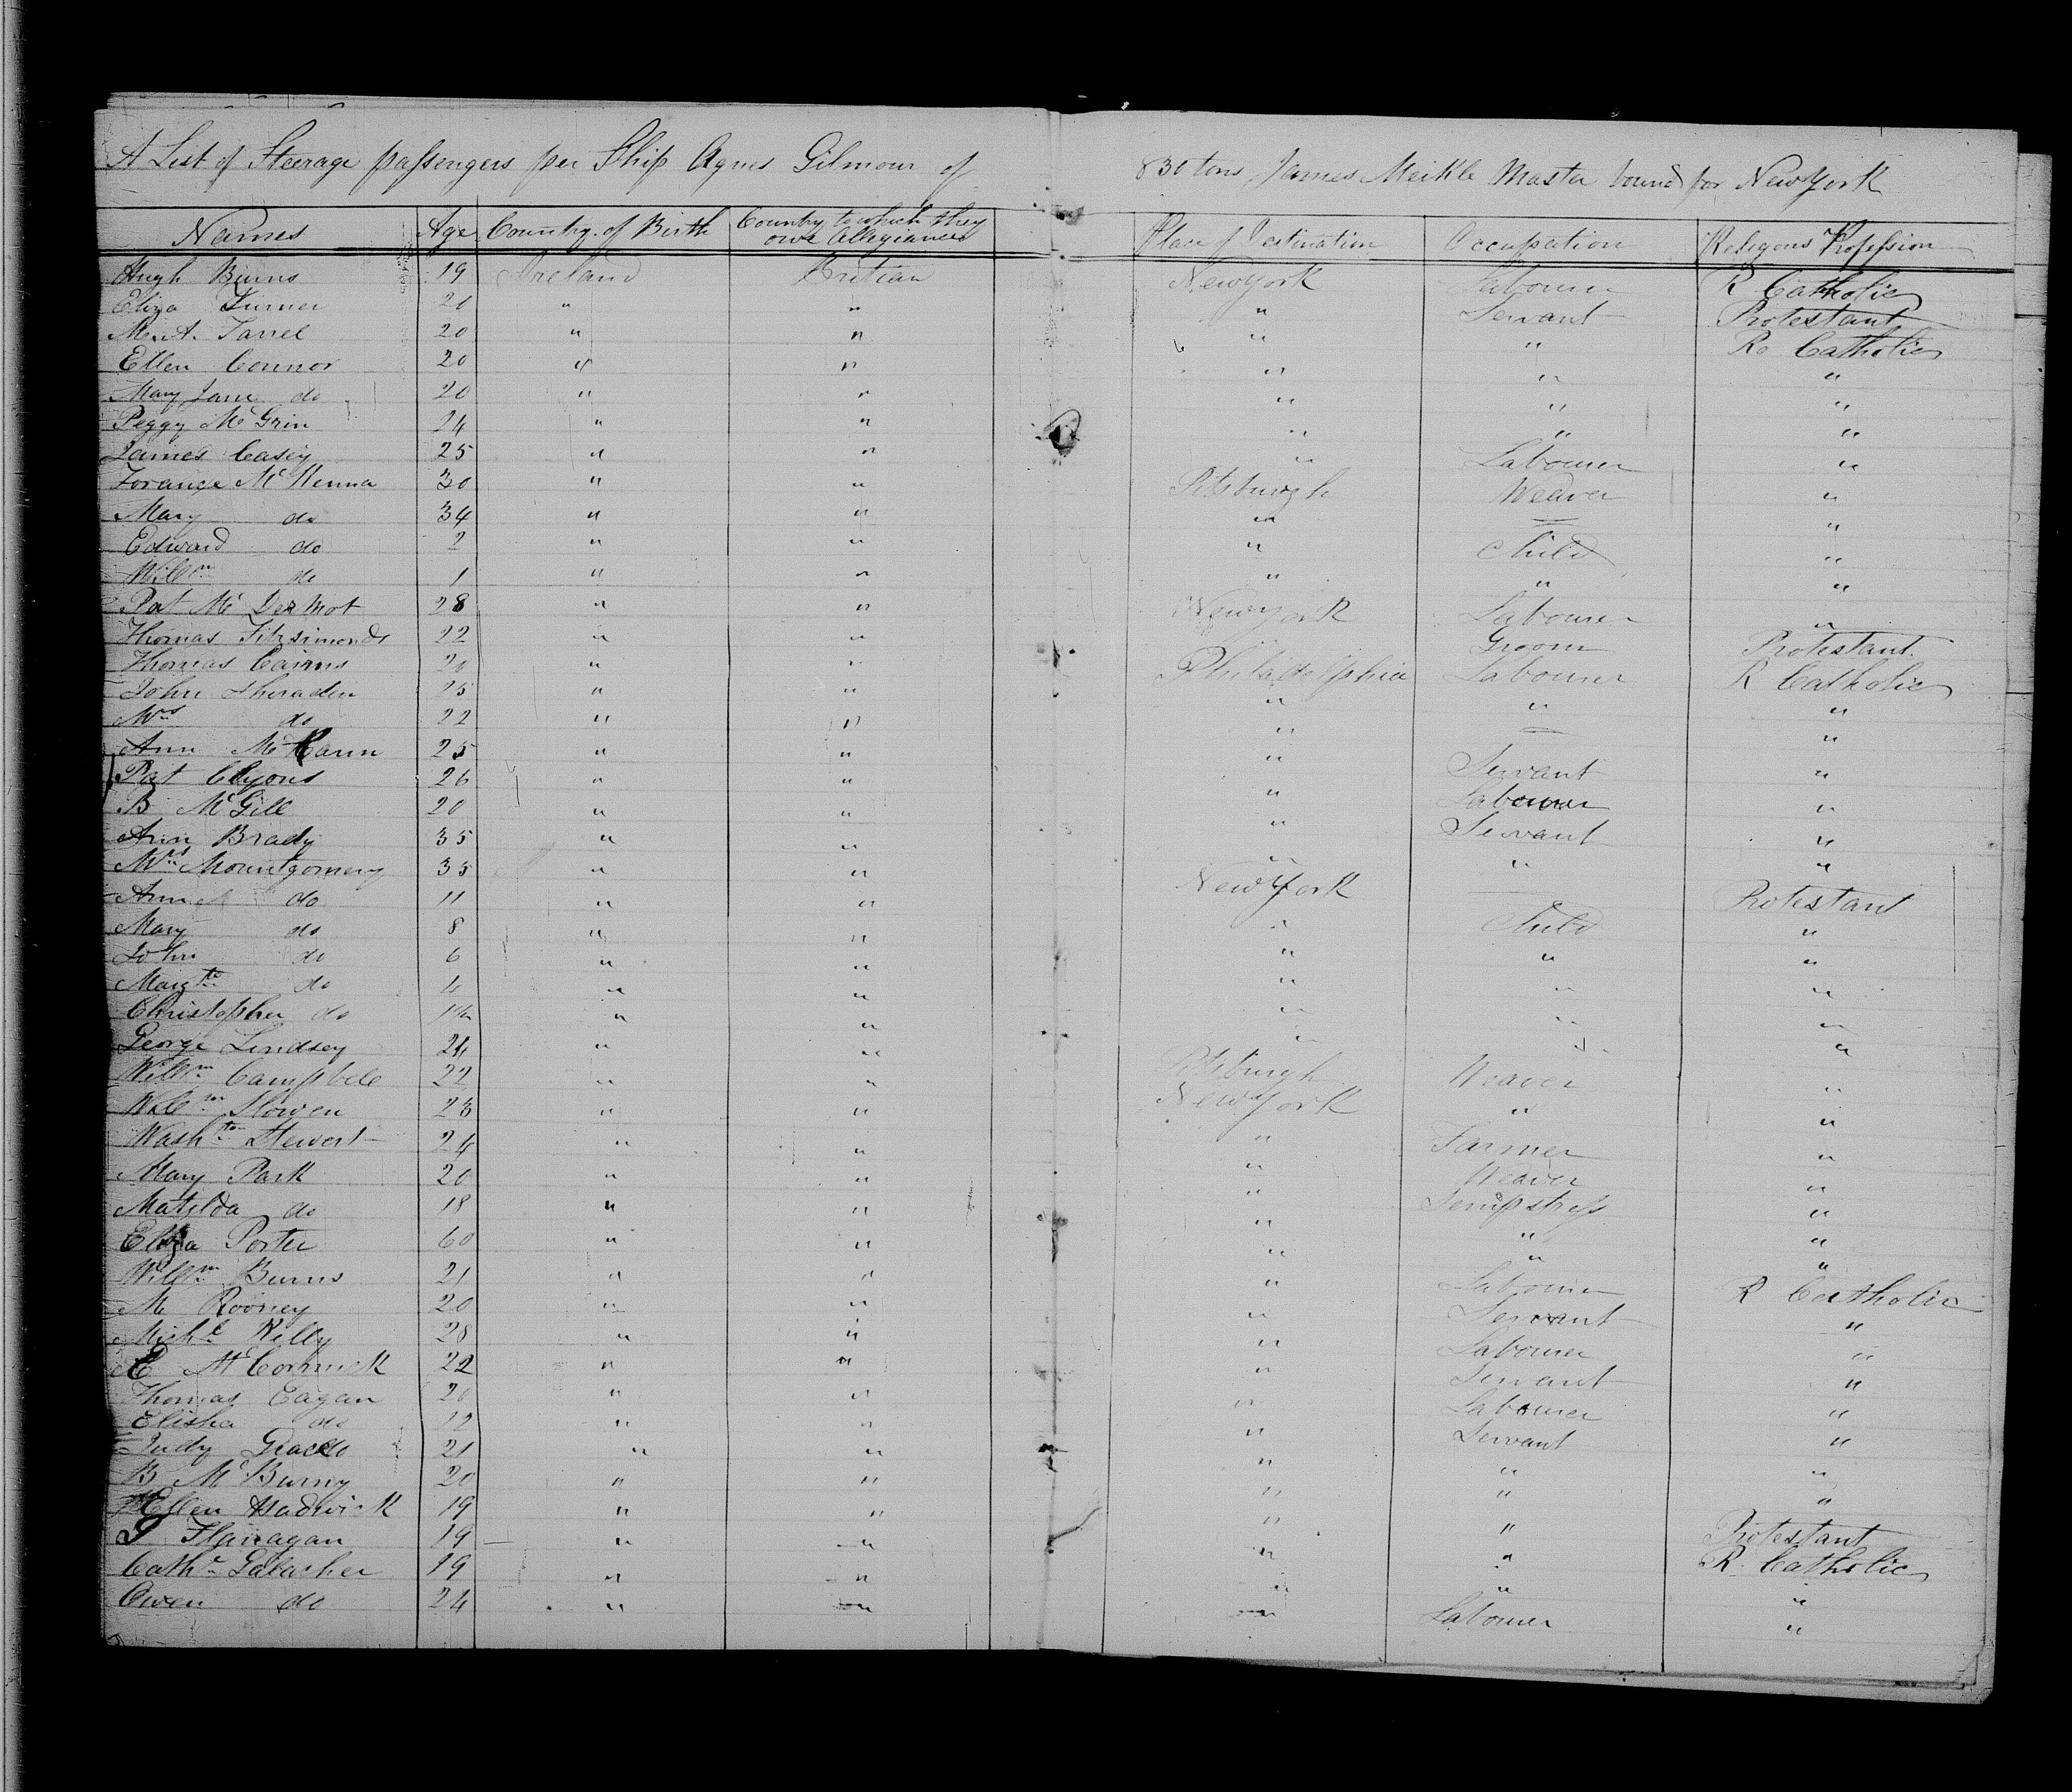 A List of Steerage passengers per Ship Agnes Gilmour of 830 tons James Meikle Master bound for New York
Names Age Country of Birth Country to which they owe Allegiance Place of Destination Occupation Religous Profession
Hugh Burns 19 Ireland Britian New York Labourer R Catholic
Eliza Turner 20 " " " Servant Protestant
M. A. Tarrel 20 " " " " Ro Catholic
Ellen Connor 20 " " " " "
Mary Jane do 20 " " " " "
Peggy McGrin 24 " " " " "
James Casey 25 " " " Labourer "
Torance McKenna 30 " " Pitsburgh Weaver "
Mary do 34 " " " = "
Edward do 2 " " " Child "
Willm do 1 " " " " "
Pat McDermot 28 " " New York Labourer "
Thomas Fitzsimonds 22 " " Groom Protestant
Thomas Cairns 20 " " Philadelphia Labourer R Catholic
John Sheraden 25 " " " " "
Mrs do 22 " " " = "
Ann McCann 25 " " " Servant "
Pat Clyons 26 " " " Labourer "
B McGill 20 " " " Servant "
Ann Brady 35 " " " " "
Mrs Mountgomery 35 " " New York — Protestant
Ann do 11 " " " Child "
Mary do 8 " " " " "
John do 6 " " " " "
Margt do 4 " " " " "
Christopher do 1½ " " " " "
George Lindsey 24 " " Pitsburgh Weaver "
Willm Campbell 22 " " New York " "
Willm Slowen 23 " " " Farmer "
Washtn Stewert 24 " " " Weaver "
Mary Park 20 " " " Sempstress "
Matilda do 18 " " " " "
Eliza Porter 60 " " " " "
Willm Burns 21 " " " Labourer R Catholic
M Rooney 20 " " " Servant "
Michl Kelly 28 " " " Labourer "
C McCormick 22 " " " Servant "
Thomas Eagan 20 " " " Labourer "
Elisha do 12 " " " Servant "
Judy 21 " " " " "
B McBurny 20 " " " " "
Ellen Hadwick 19 " " " " Protestant
Flanagan 19 " " " " R. Catholic
Cath Galacher 19 " " " " "
Owen do 24 " " " Labourer "